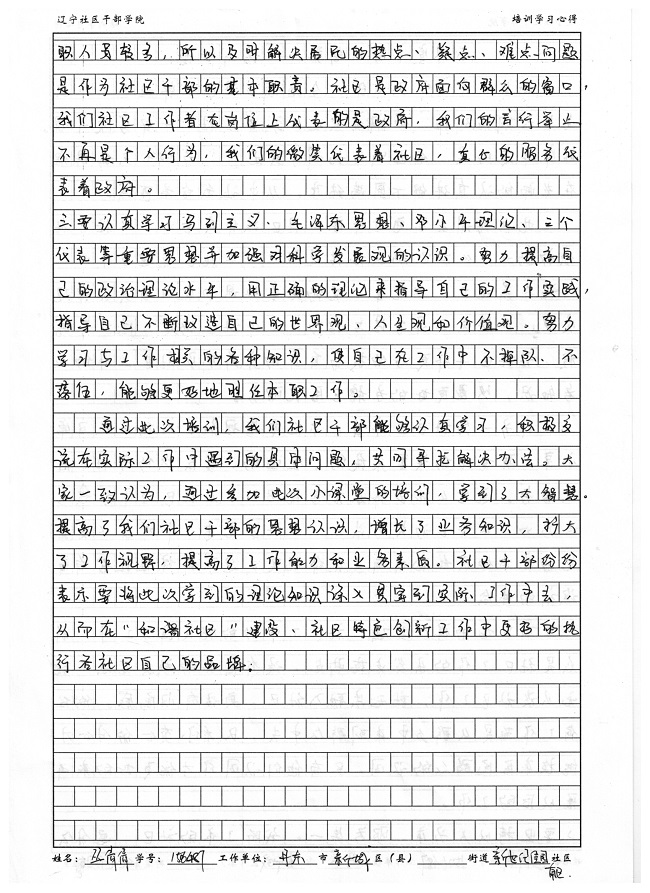 辽宁社区干部学院 培训学习心得
职人员较多，所以及时解决居民的热点、疑点、难点问题
是作为社区干部的基本职责。社区是政府面向群众的窗口，
我们社区工作者在岗位上代表的是政府，我们的言行举止
不再是个人行为，我们的微笑代表着社区，真正的服务代
表着政府。
三要认真学习马列主义、毛泽东思想、邓小平理论、三个
代表等重要思想并加强对科学发展观的认识。努力提高自
己的政治理论水平，用正确的理论来指导自己的工作实践，
指导自己不断改造自己的世界观、人生观和价值观。努力
学习与工作相关的各种知识，使自己在工作中不掉队、不
落伍，能够更好地胜任本职工作。
通过此次培训，我们社区干部能够认真学习，积极交
流在实际工作中遇到的具体问题，共同寻找解决办法。大
家一致认为，通过参加此次小课堂的培训，学到了大智慧。
提高了我们社区干部的思想认识，增长了业务知识，扩大
了工作视野，提高了工作能力和业务素质。社区干部纷纷
表示要将此次学到的理论知识深入贯穿到实际工作中去，
从而在“和谐社区”建设、社区特色创新工作中更好的执
行各社区自己的品牌；
姓名： 学号： 工作单位：丹东市 区（县） 街道 社区